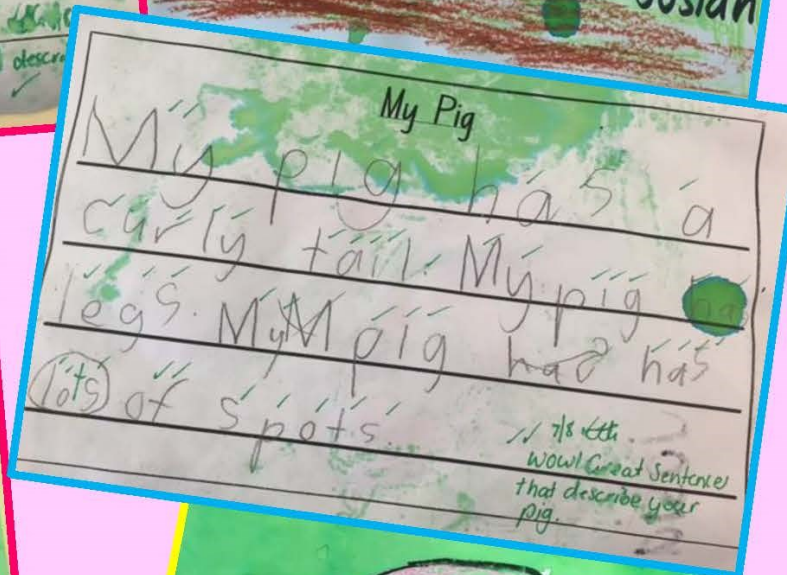 My Pig
My pig has a
curly tail. My pig has
legs. MyM pig had has
lots of spots.
7/8
Wow! Great Sentences
that describe your
pig.